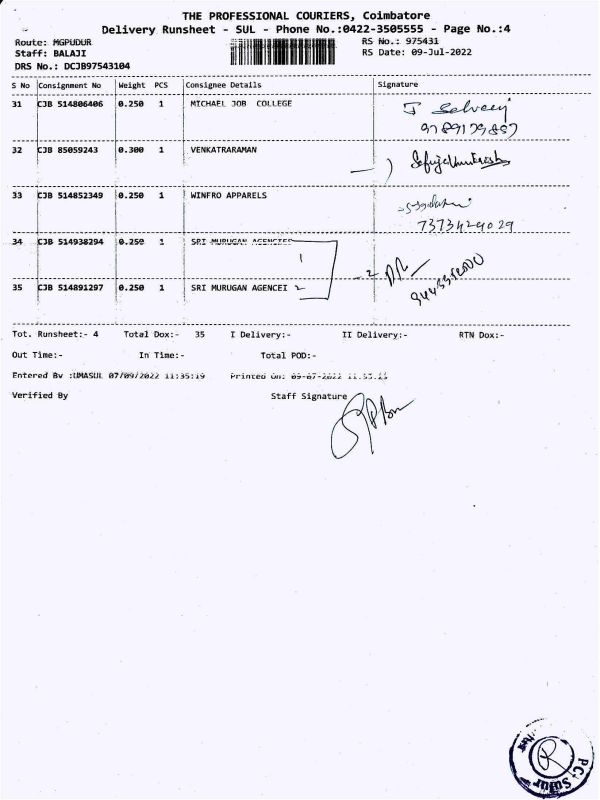 THE PROFESSIONAL COURIERS, Coimbatore
Delivery Runsheet - SUL - Phone No.:0422-3505555 - Page No.:4
Route: MGPUDUR RS No.: 975431
Staff: BALAJI RS Date: 09-Jul-2022
DRS No.: DCJB97543104
S No Consignment No Weight PCS Consignee Details Signature
31 CJB 514806406 0.250 1 MICHAEL JOB COLLEGE
32 CJB 85059243 0.300 1 VENKATRARAMAN
33 CJB 514852349 0.250 1 WINFRO APPARELS
7373429029
34 CJB 514938294 0.250 1 SRI MURUGAN AGENCIES
1
35 CJB 514891297 0.250 1 SRI MURUGAN AGENCEI 2
Tot. Runsheet:- 4 Total Dox:- 35 I Delivery:- II Delivery:- RTN Dox:-
Out Time:- In Time:- Total POD:-
Entered By :UMASUL 07/09/2022 11:35:19 Printed On: 09-07-2022
Verified By Staff Signature